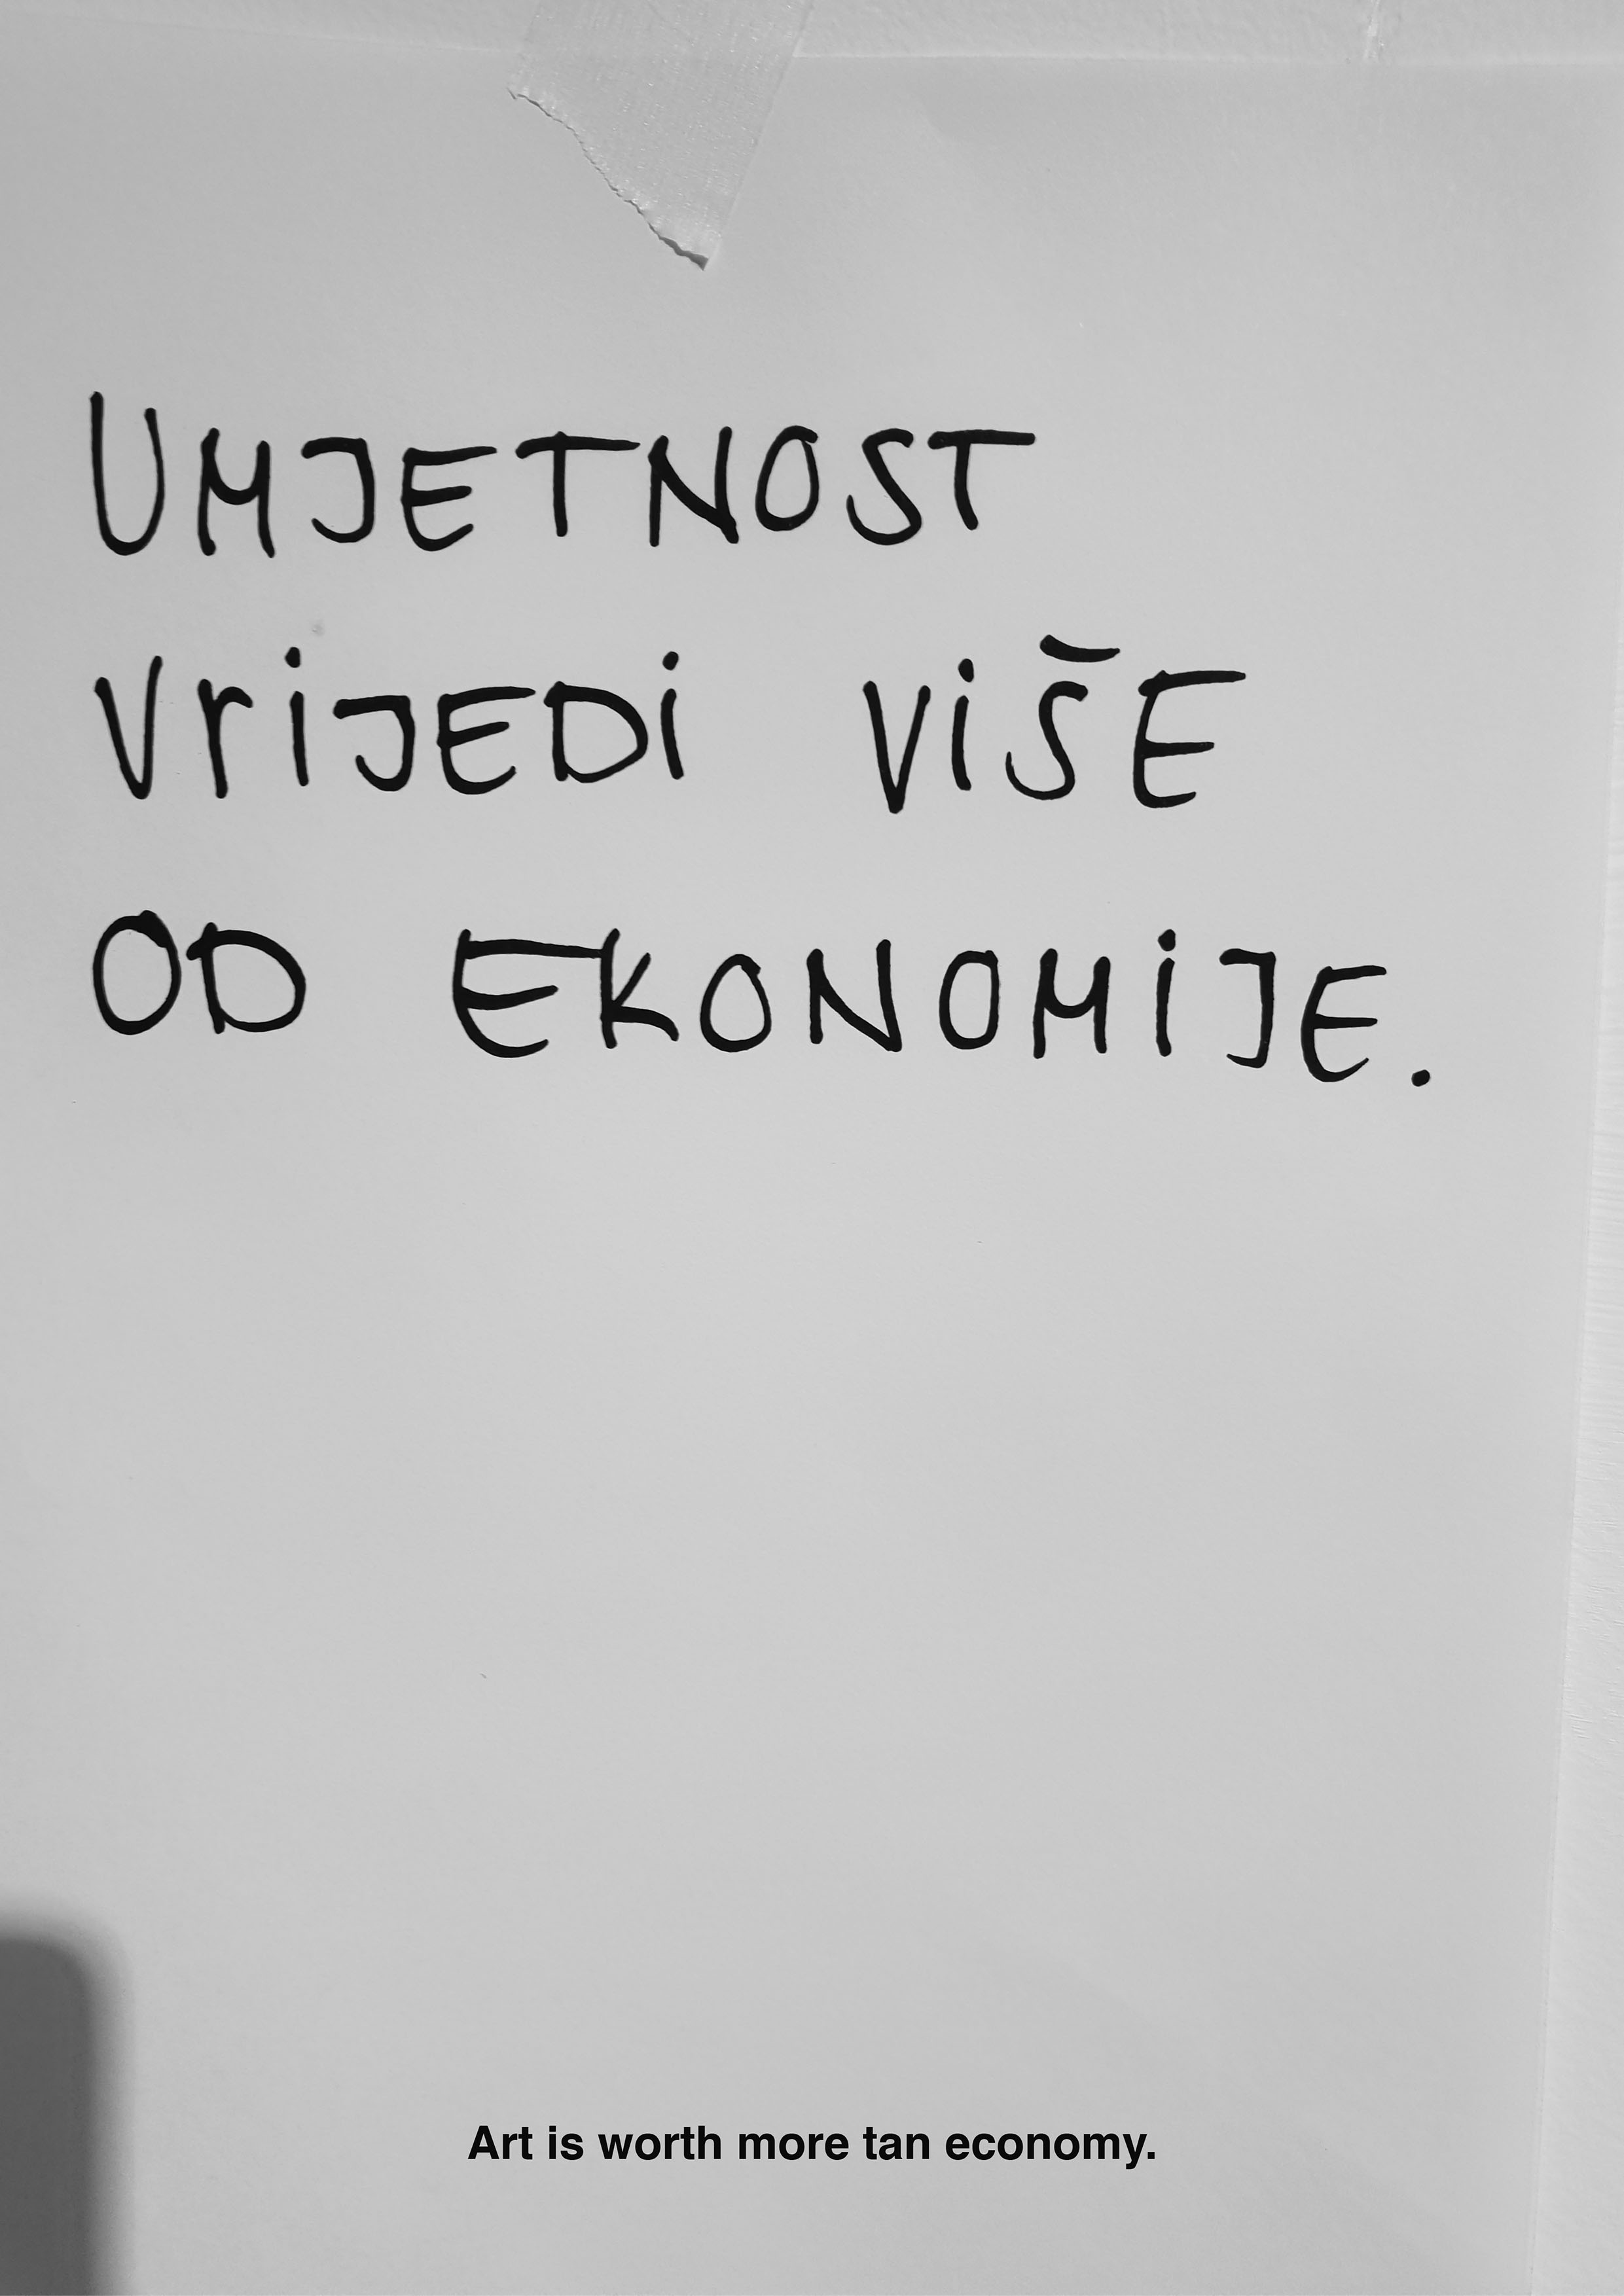 UMJETNOST
VriJEDi ViŠE
OD EKONOMiJE.
Art is worth more tan economy.